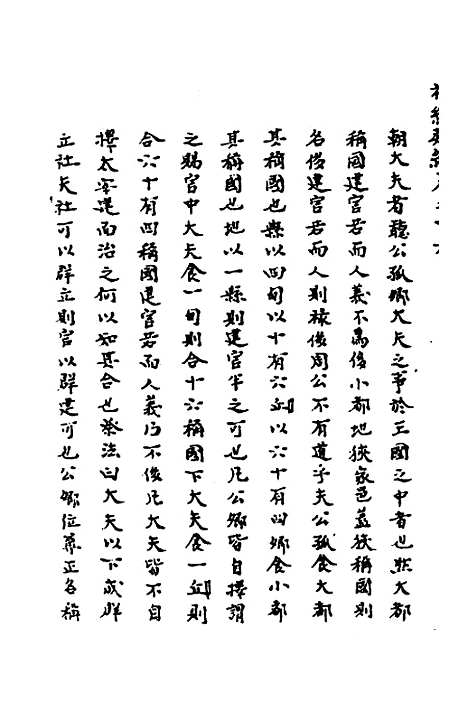 朝大夫者聽公孤卿大夫之事於王國之中者也然大都
稱國建官若而人義不為侈小都地狹家邑蓋狹稱國則
名侈建官若而人則祿侈周公不有道乎夫公孤食大都
其稱國也縣以四甸以十有六丘以六十有四卿食小都
其稱國也地以一縣則建官半之可也凡公卿皆自擇謂
之賜官中大夫食一甸則合十六稱國下大夫食一丘則
合六十有四稱國建官若而人義乃不侈凡大夫皆不自
擇太宰選而治之何以知其合也祭法曰大夫以下成群
立社夫社可以群立則官以群建可也公卿位篹正名稱